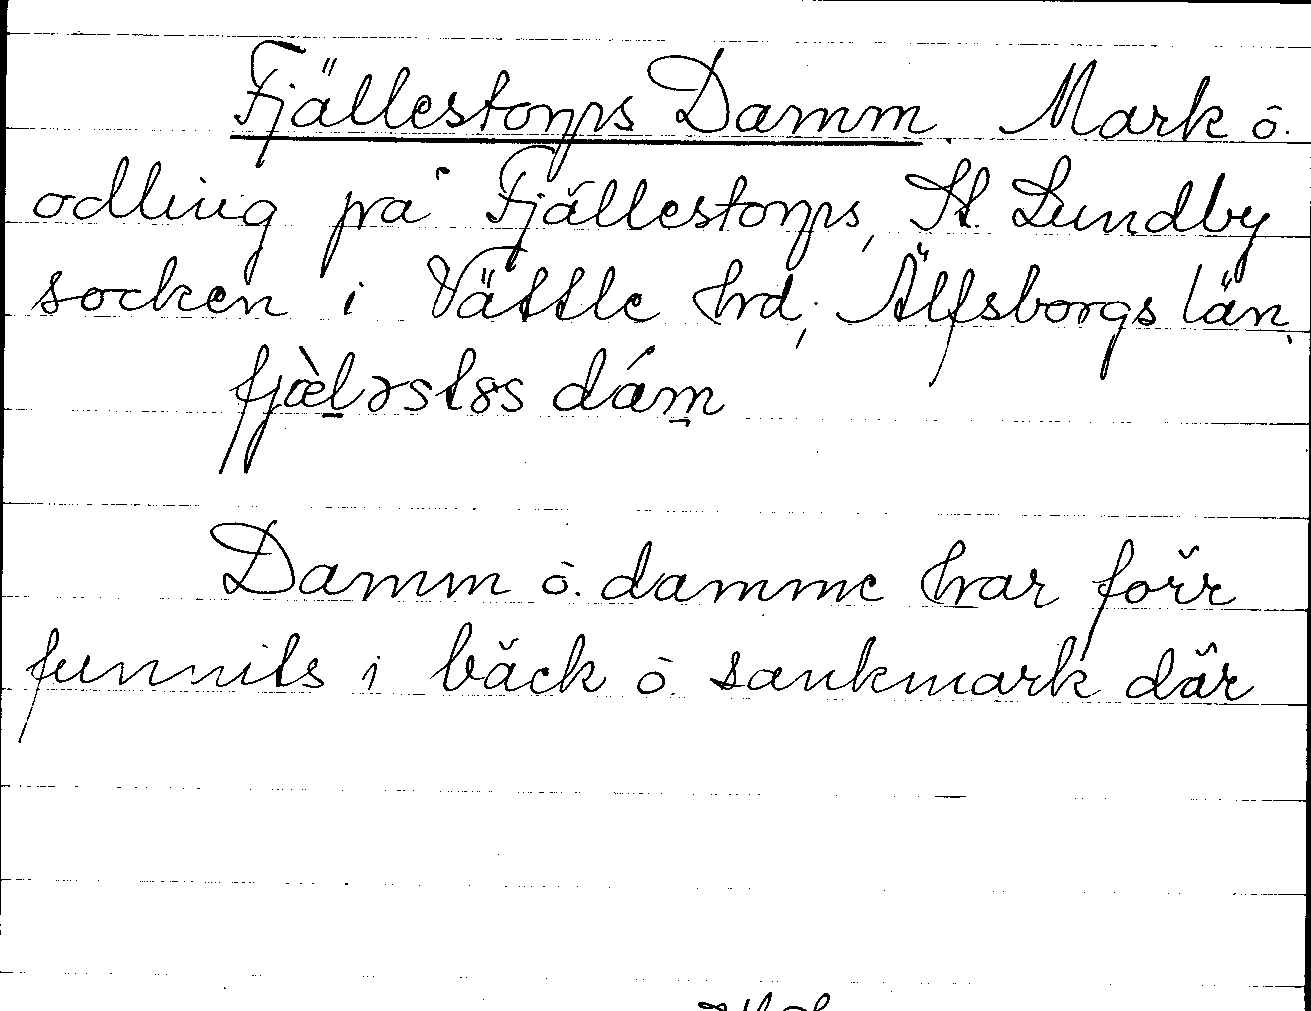 Fjällestorps Damm. Mark o.
odling på Fjällestorps, St. Lundby
socken i Vättle hrd; Älfsborgs län.
fjæ̀l̠əstɞs dám̠
Damm o. damme har förr
funnits i bäck o. sankmark där